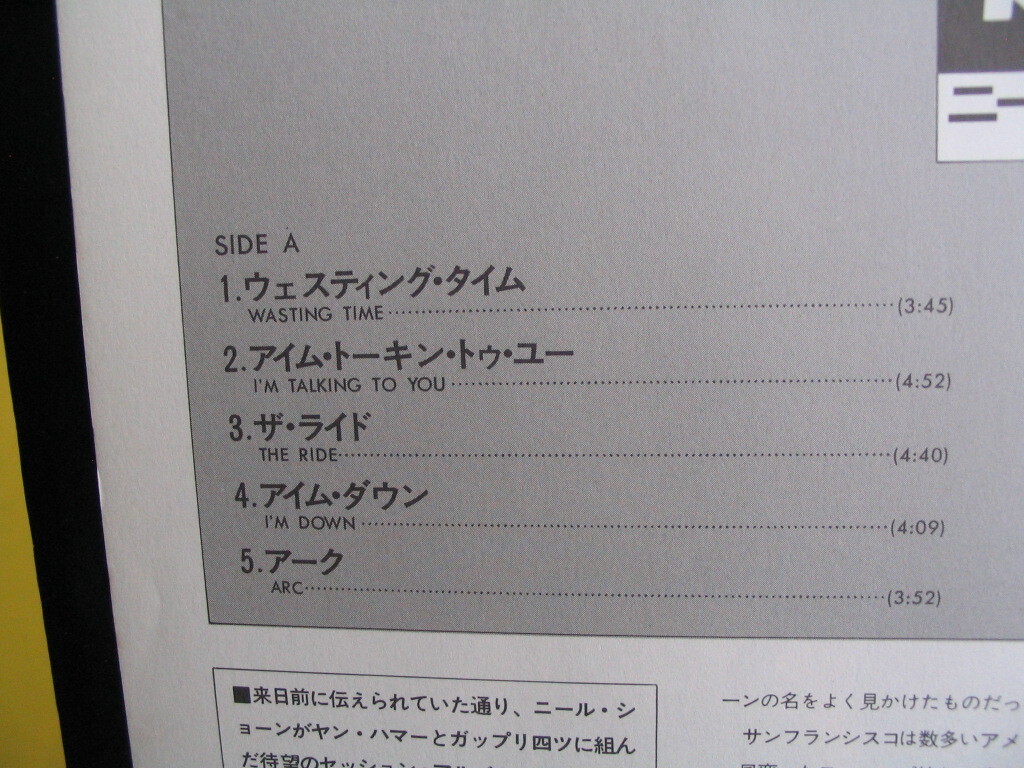 ニー
SIDE A
1.ウェスティング・タイム
WASTING TIME (3:45)
2.アイム・トーキン・トゥ・ユー
I'M TALKING TO YOU (4:52)
3.ザ・ライド
THE RIDE (4:40)
4.アイム・ダウン
I'M DOWN (4:09)
5.アーク
ARC (3:52)
■来日前に伝えられていた通り、ニール・シ
ョーンがヤン・ハマーとガップリ四ツに組ん
だ待望のセッション・アル
ーンの名をよく見かけたものだっ
サンフランシスコは数多いアメ